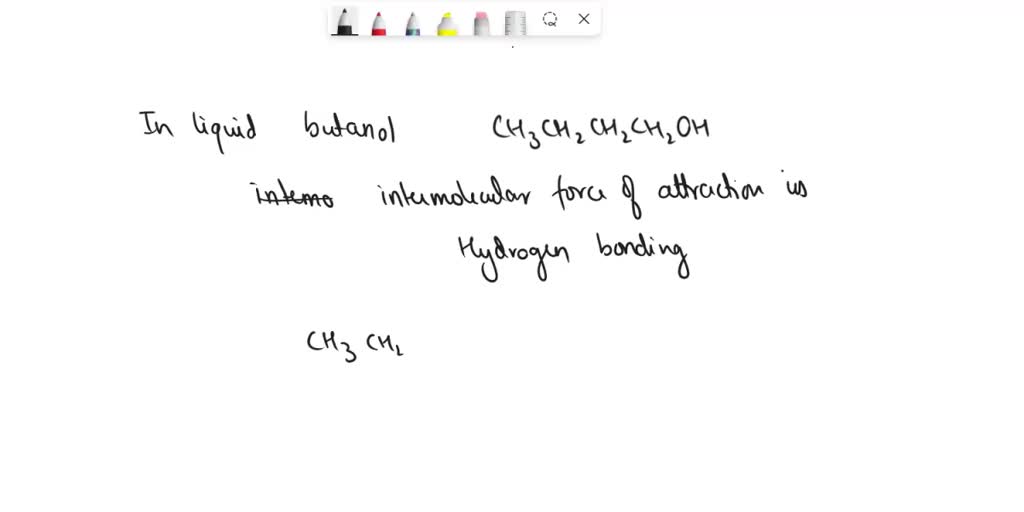 In liquid butanol CH3CH2CH2CH2OH
intemo intermolecular force of attraction is
Hydrogen bonding
CH3 CH2